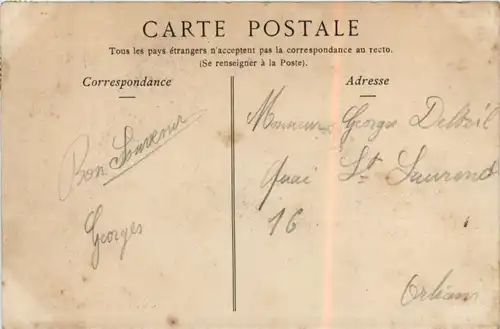 CARTE POSTALE
Tous les pays étrangers n'acceptent pas la correspondance au recto.
(Se renseigner à la Poste).
Correspondance
Bon Souvenir
Georges
Adresse
Monsieur Georges
Quai St Laurent
16
Orléans